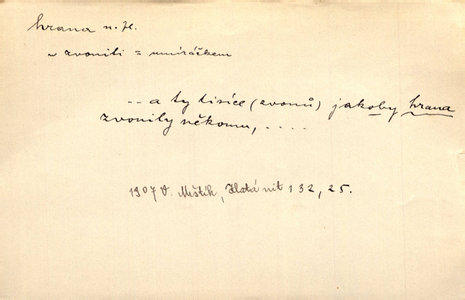 hrana n. pl.
~ zvoniti = umíráčkem
... a ty tisíce (zvonů) jakoby hrana
zvonily někomu, ....
1907 V. Mrštík, Zlatá nit 132, 25.